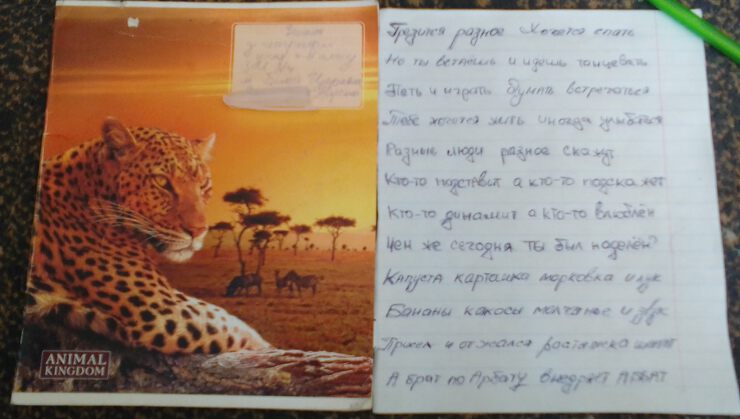 Зошит
ANIMAL
KINGDOM
Грезится разное Хочется спать
Но ты встаёшь и идёшь танцевать
Петь и играть Думать встречаться
Тебе хочется жить иногда улыбаться
Разные люди разное скажут
Кто-то подставит а кто-то подскажет
Кто-то динамит а кто-то влюблён
Чем же сегодня ты был наделён?
Капуста картошка морковка и лук
Бананы кокосы молчание и звук
Присел и отжался растяжка шпагат
А брат по Арбату внедряет АРБАТ